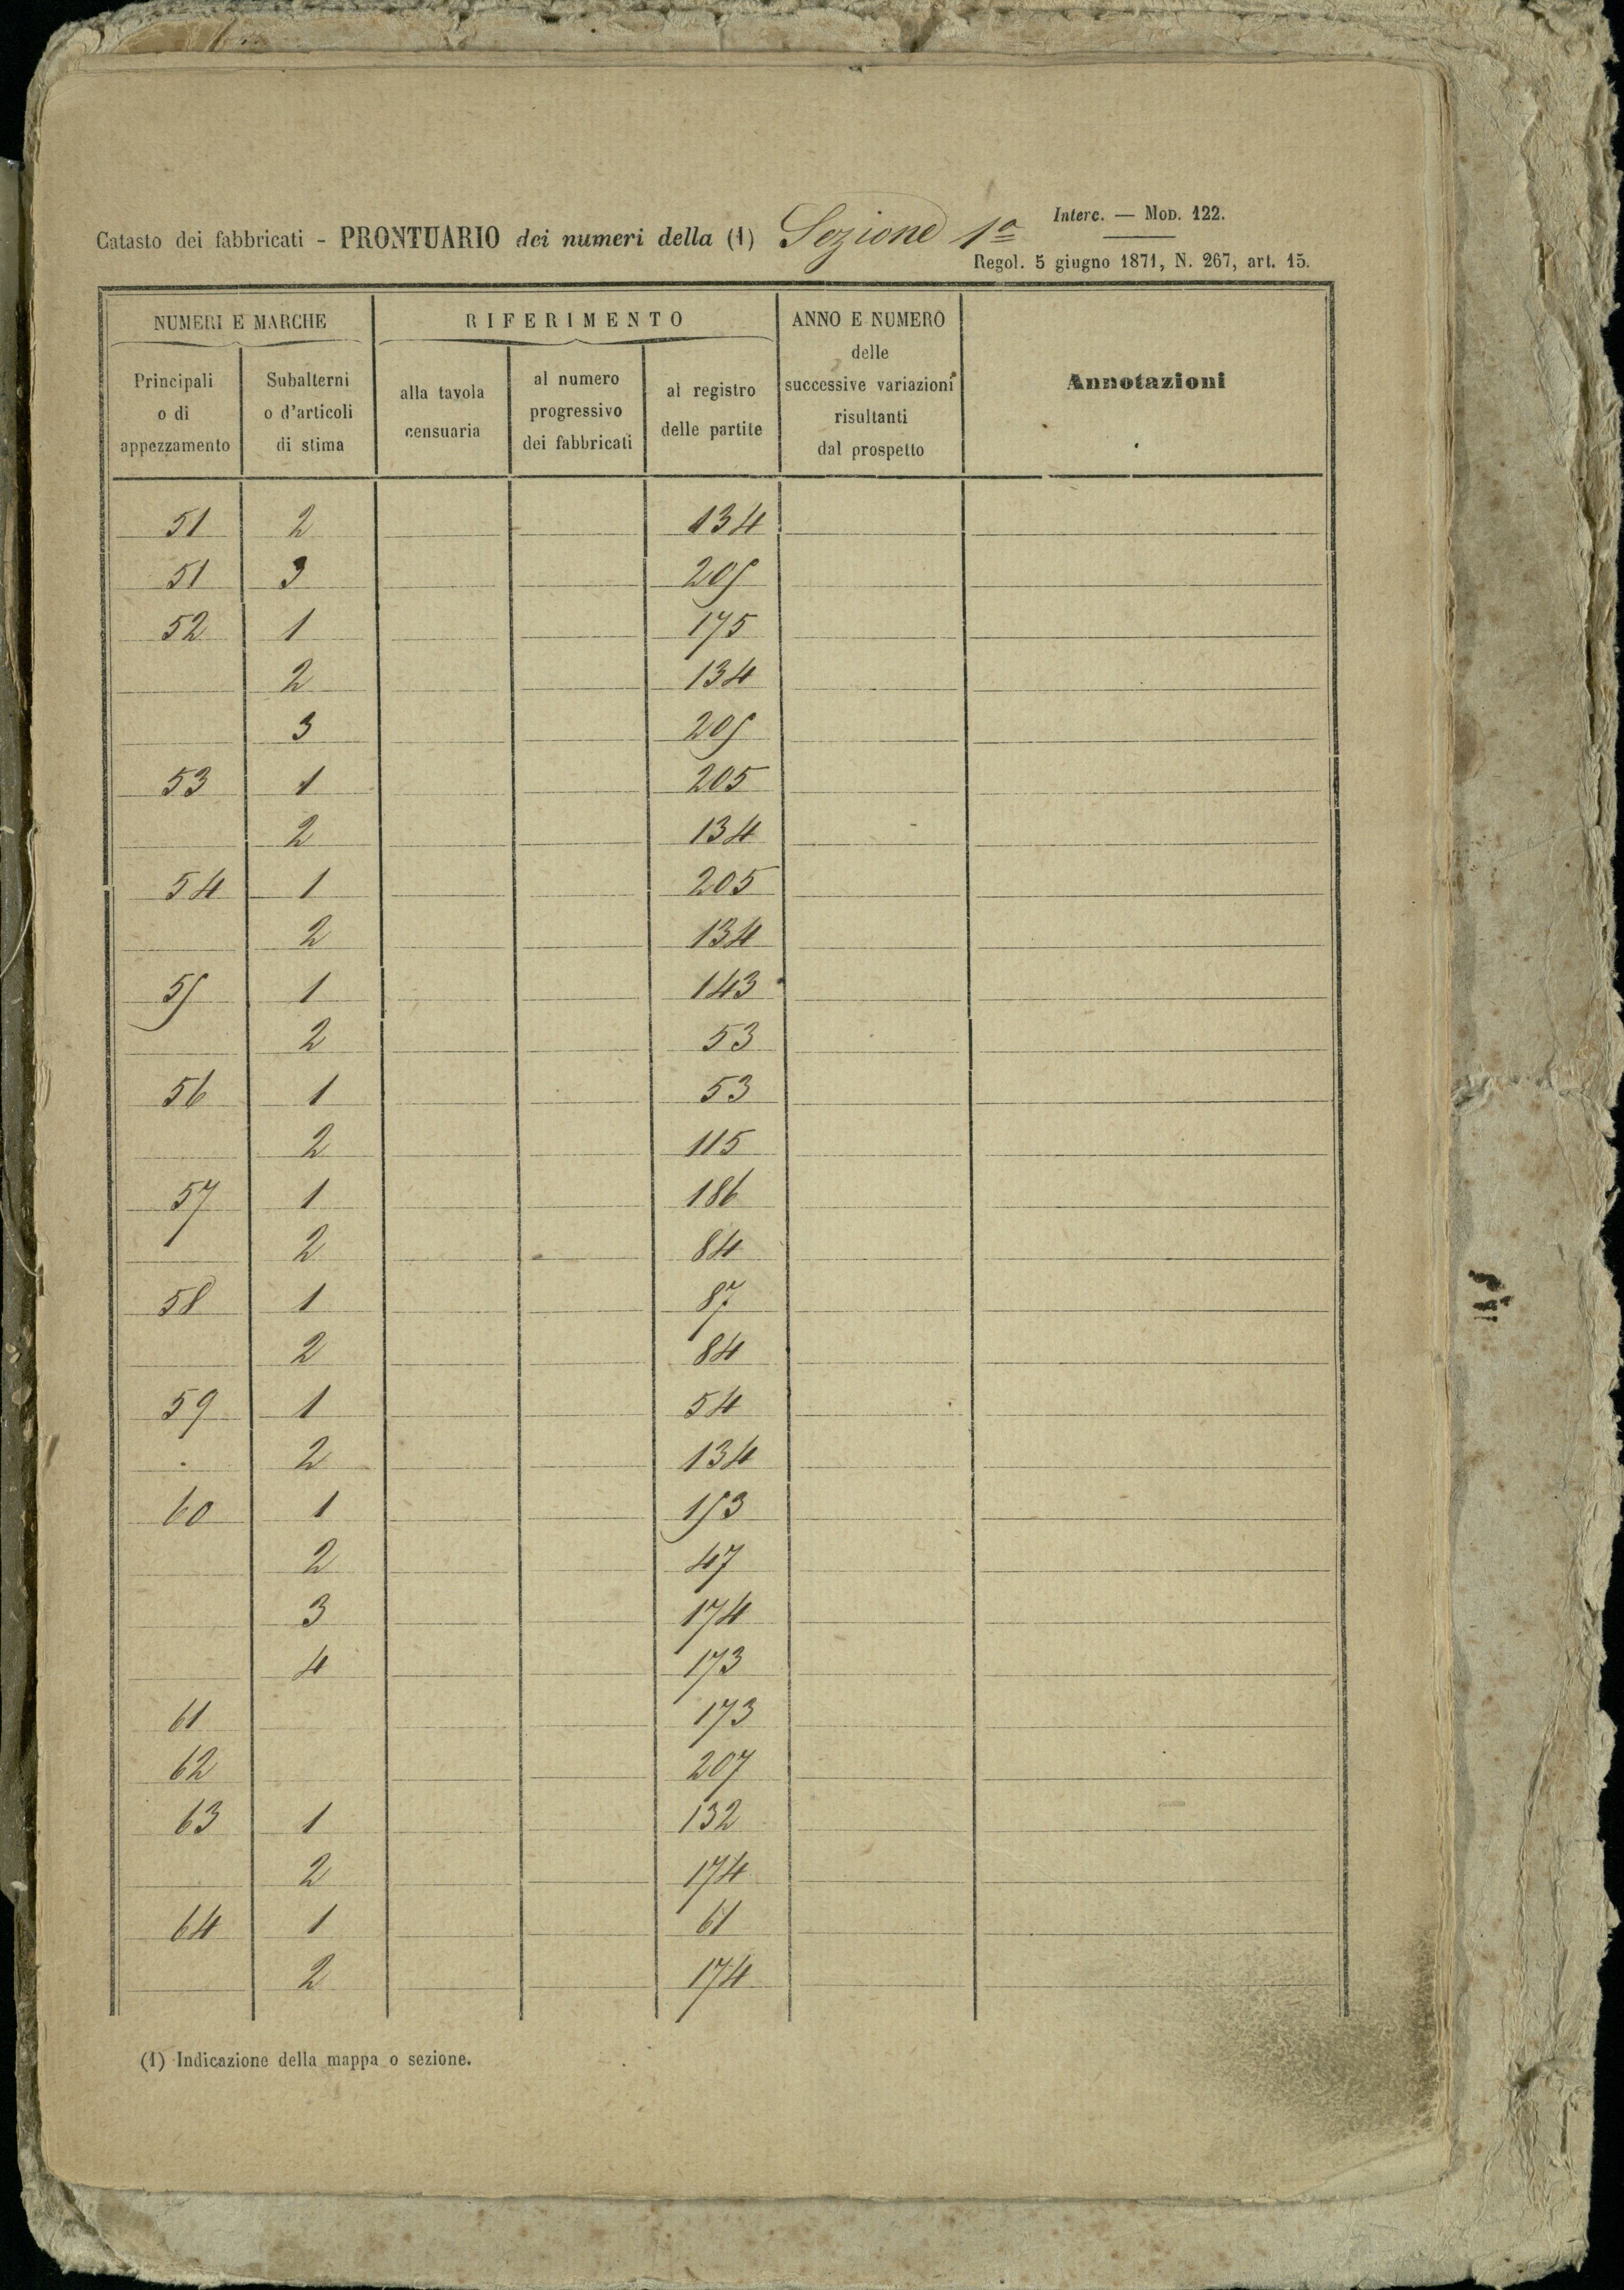 Interc. — Mod. 122.
Catasto dei fabbricati - PRONTUARIO dei numeri della (1) Sezione 1ª
Regol. 5 giugno 1871, N. 267, art. 15.
NUMERI E MARCHE RIFERIMENTO ANNO E NUMERO delle successive variazioni risultanti dal prospetto Annotazioni
Principali o di appezzamento Subalterni o d'articoli di stima alla tavola censuaria al numero progressivo dei fabbricati al registro delle partite
51 2 134
51 3 205
52 1 175
2 134
3 205
53 1 205
2 134
54 1 205
2 134
55 1 143
2 53
56 1 53
2 115
57 1 186
2 84
58 1 87
2 84
59 1 54
2 134
60 1 153
2 47
3 174
4 173
61 173
62 207
63 1 132
2 174
64 1 61
2 174
(1) Indicazione della mappa o sezione.